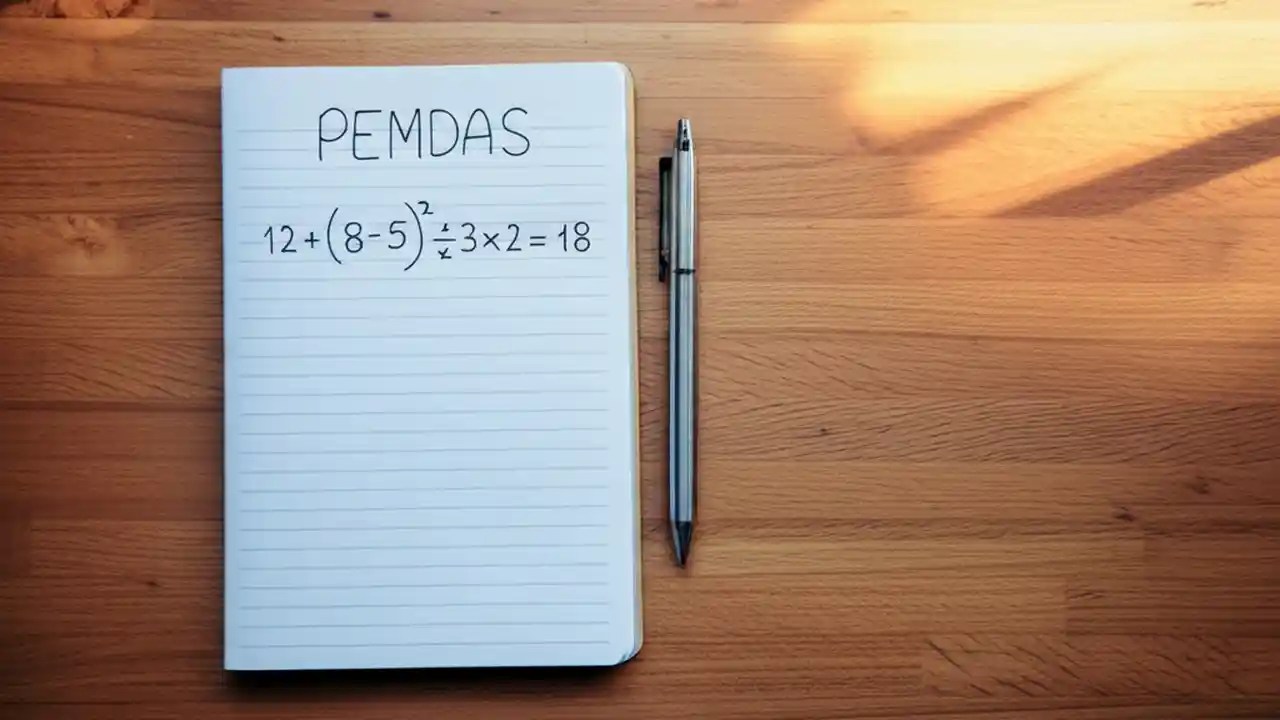 PEMDAS
12 + (8 - 5)² ÷ 3 × 2 = 18